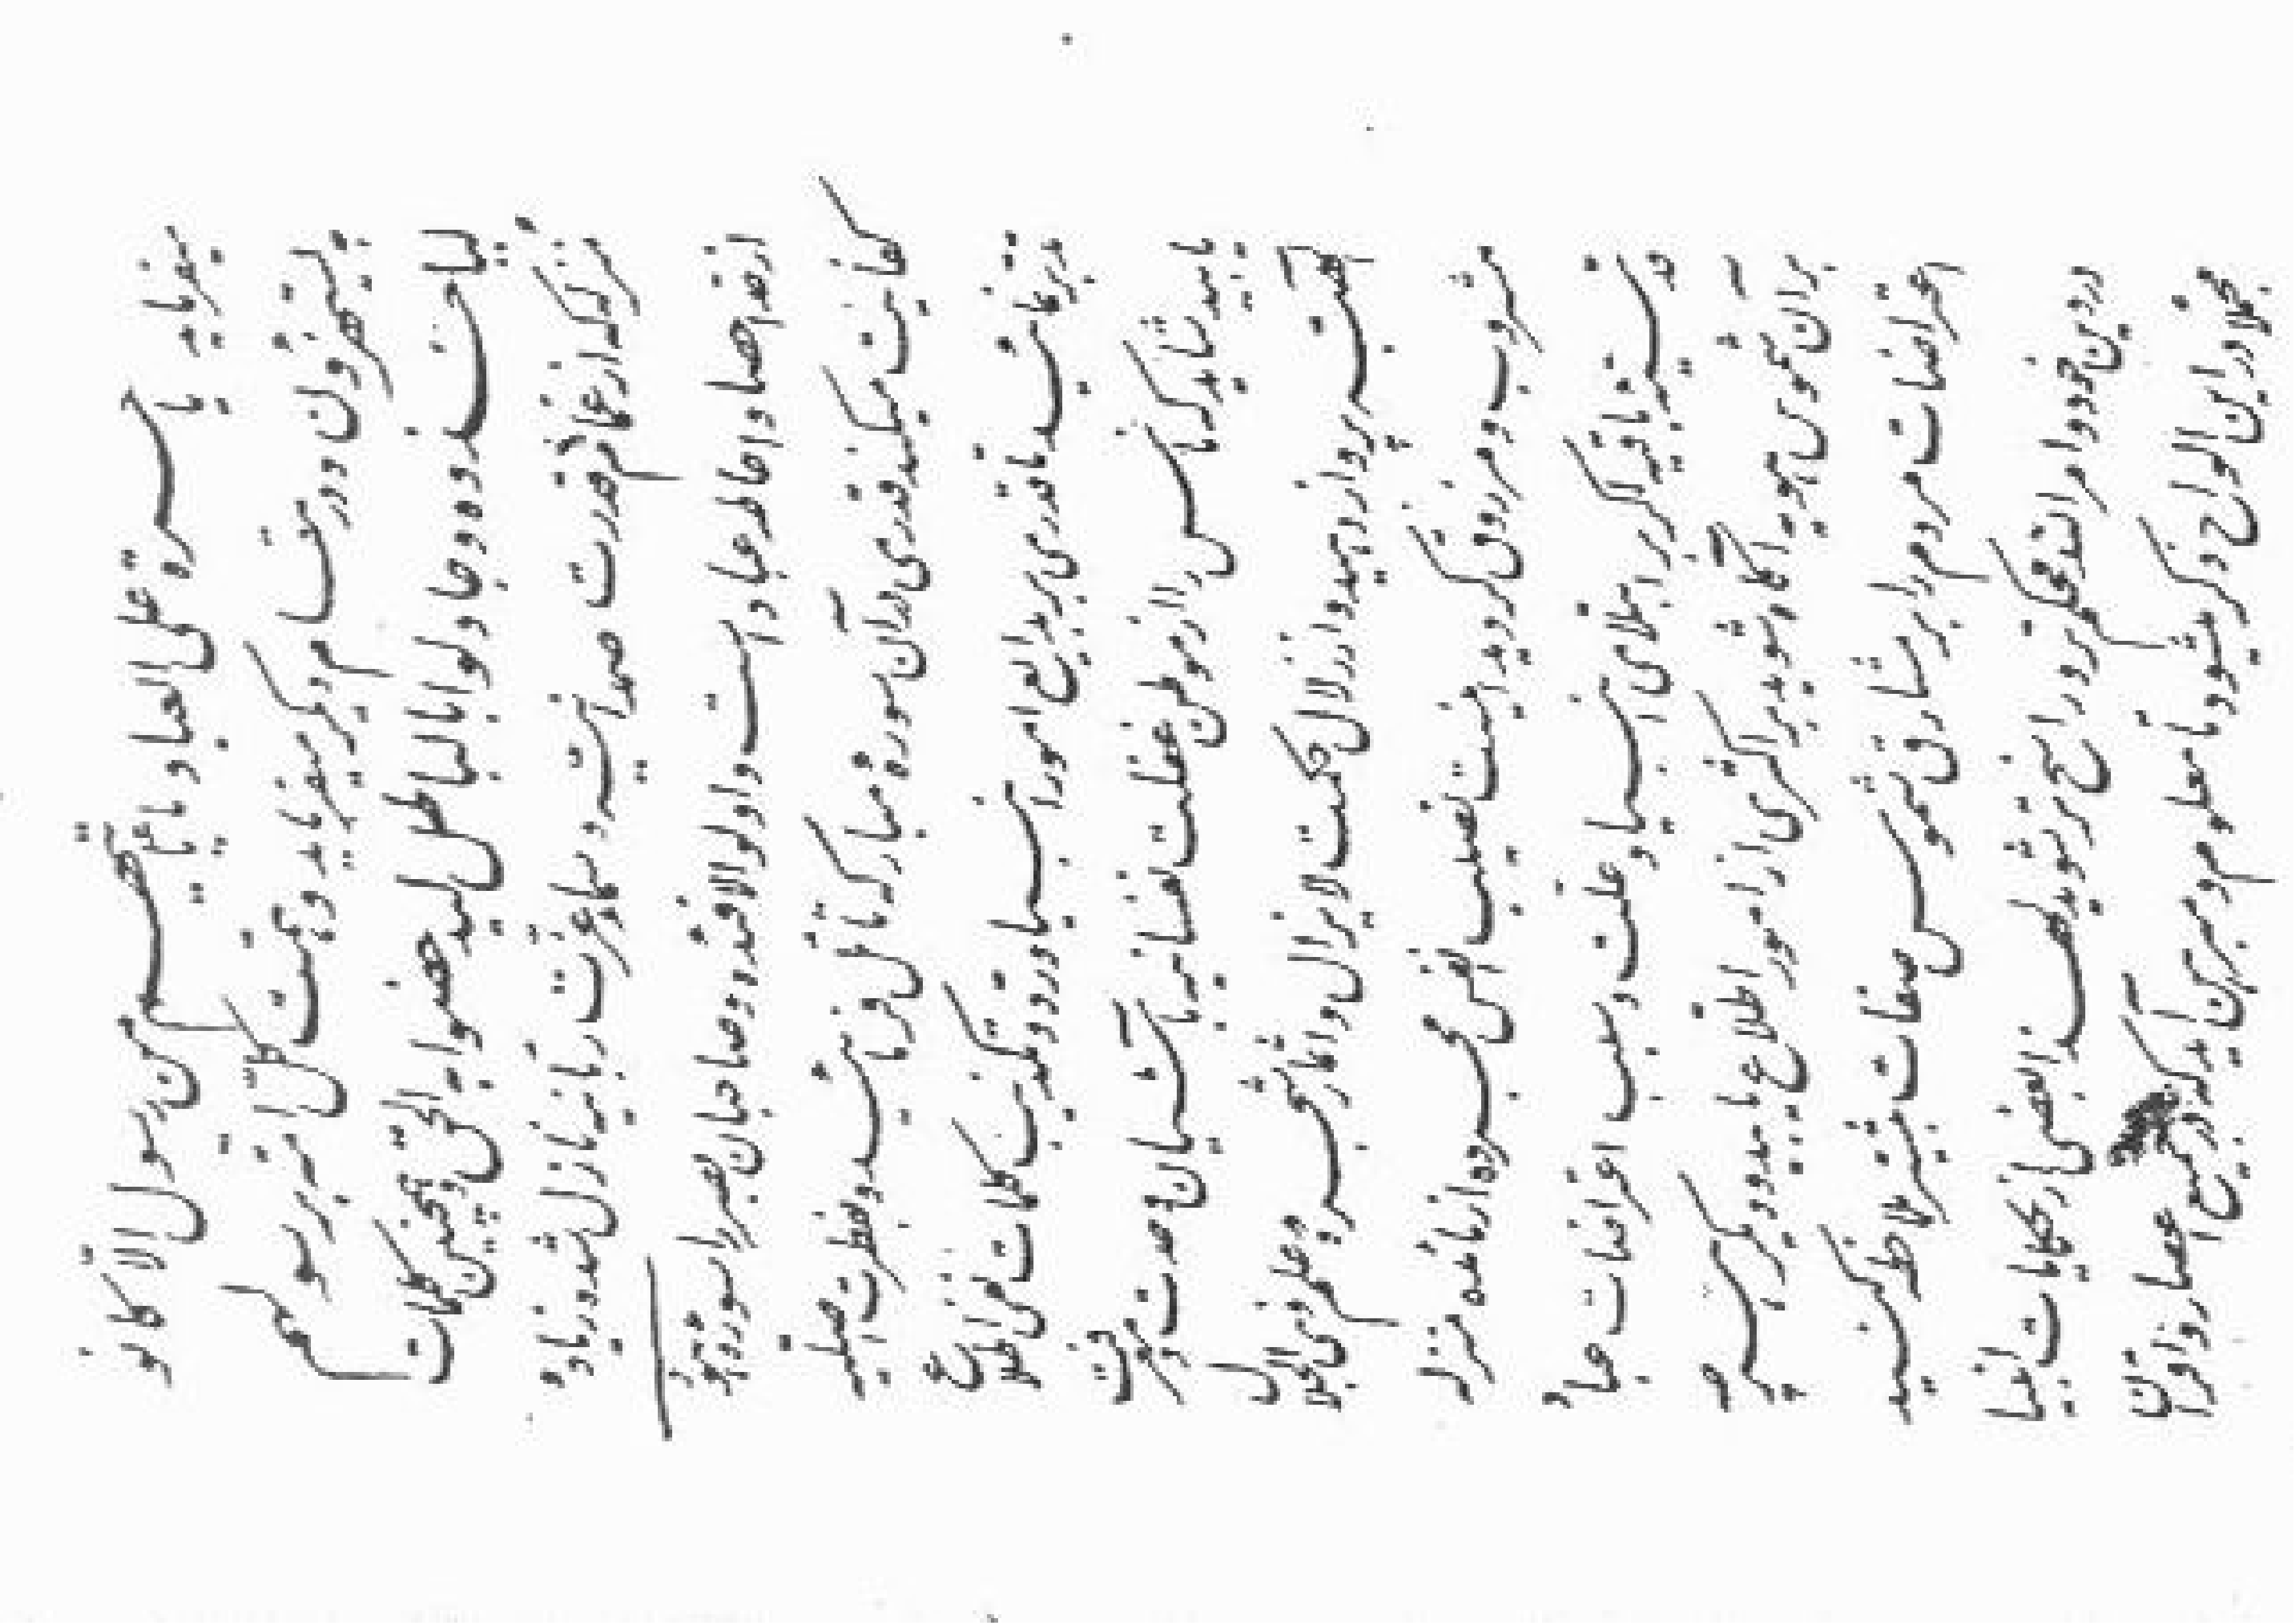 میفرماید یا حسرة علی العباد ما یأتیهم من رسول الّا کانو
به یستهزؤن و در مقام دیگر میفرماید و همّت کلّ امّة برسولهم
لیاخذوه و جادلوا بالباطل لیدحضوا به الحقّ و همچنین کلمات
منزله که از غمام قدرت صمدانیّه و سماء عزّت ربانیه نازل شده زیاده
از حد احصا و احاطه عباد است و اولوا الافئده و صاحبان بصر را سوره هود
کفایت میکند قدری در آن سورهٔ مبارکه تامّل فرمائید و بفطرت اصلیّه
تدبر نمائید تا قدری بر بدایع امور انبیا و رد و تکذیب کلمات نفی اطلاع
یابید شاید که ناس را از موطن غفلت نفسانیه بآشیان وحدت و معرفت
الهیّه پرواز دهید و از زلال حکمت لا یزال و اثمار شجره علم ذی الجلال
مشروب و مرزوق گردید اینست نصیب انفس مجرده از مائده منزله
قدسیّه باقیه اگر بر ابتلای انبیا و علّت و سبب اعتراضات عباد
بر آن شموس هویه آگاه شوید بر اکثری از امور اطّلاع یابید و دیگر هر چه
اعتراضات مردم را بر مشارق شموس صفات بیشتر ملاحظه کنید
در دین خود و امر الله محکمتر و راسخ تر شوید لهذا بعضی از حکایات انبیا
مجملا در این الواح ذکر میشود تا معلوم و مبرهن آید که در جمیع اعصار و اوان